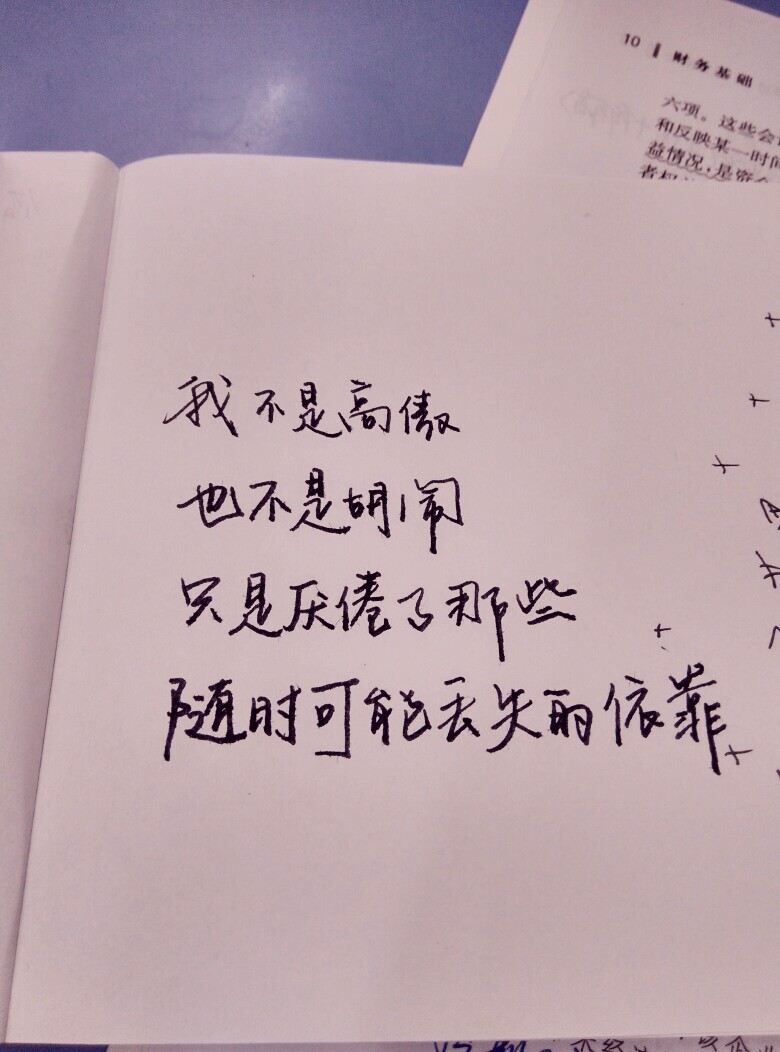 10 财务基础
六项。这些会
和反映某一时间
益情况,是资
我不是高傲
也不是胡闹
只是厌倦了那些
随时可能丢失的依靠